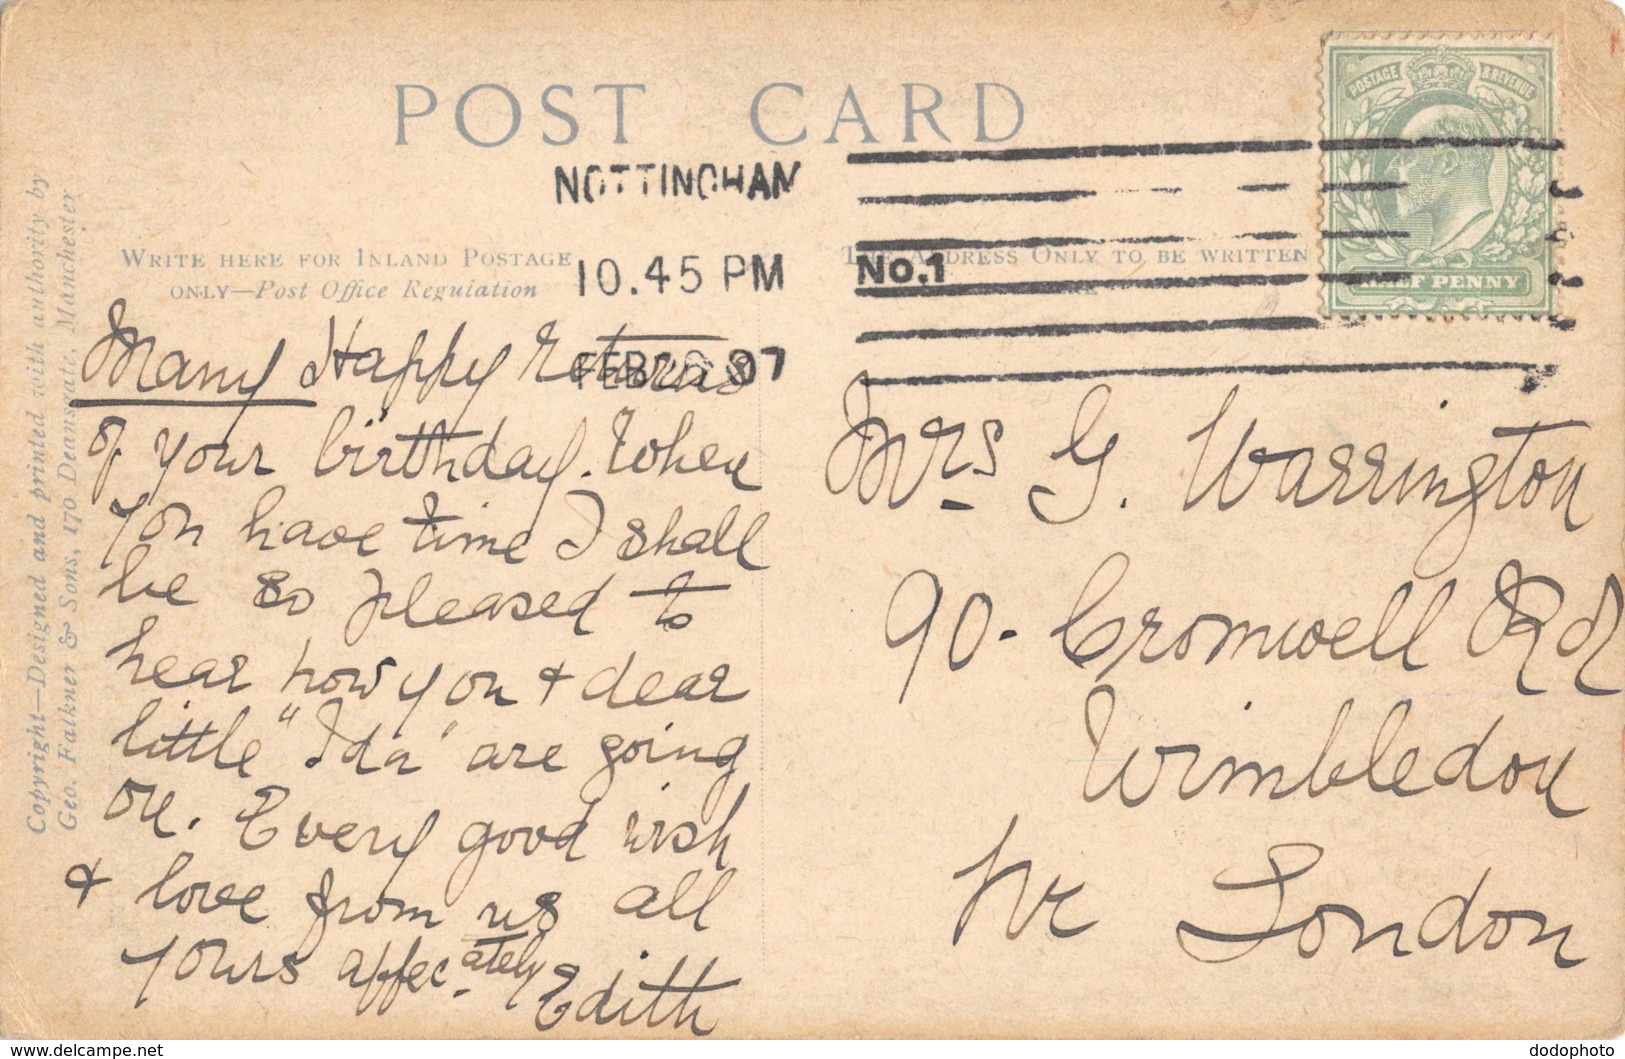 POST CARD
NOTTINGHAM
10.45 PM
FEB 07
No.1
POSTAGE & REVENUE
HALF PENNY
WRITE HERE FOR INLAND POSTAGE
ONLY—Post Office Regulation
THE ADDRESS ONLY TO BE WRITTEN
Copyright—Designed and printed with authority by
Geo. Falkner & Sons, 170 Deansgate, Manchester
Many Happy Returns
of your birthday. When
you have time I shall
be so pleased to
hear how you & dear
little "Ida" are going
on. Every good wish
& love from us all
yours affec.ately
Edith
Mrs G. Warrington
90. Cromwell Rd
Wimbledon
Nr London
www.delcampe.net
dodophoto